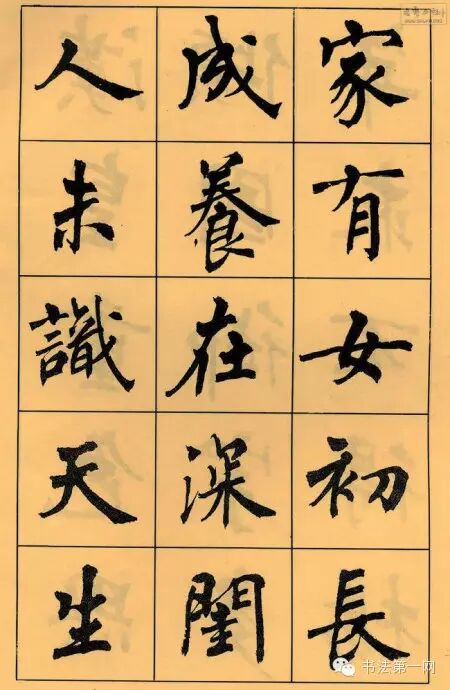 家有女初長
成養在深閨
人未識天生
书法第一网